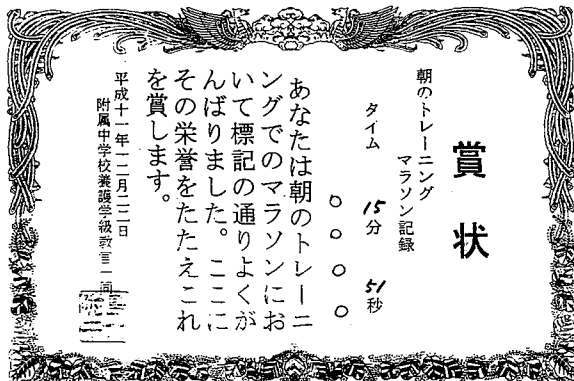 賞状
朝のトレーニング
マラソン記録
タイム 15分 51秒
○○○○
あなたは朝のトレーニ
ングでのマラソンにお
いて標記の通りよくが
んばりました。ここに
その栄誉をたたえこれ
を賞します。
平成十一年一二月二二日
附属中学校養護学級教官一同